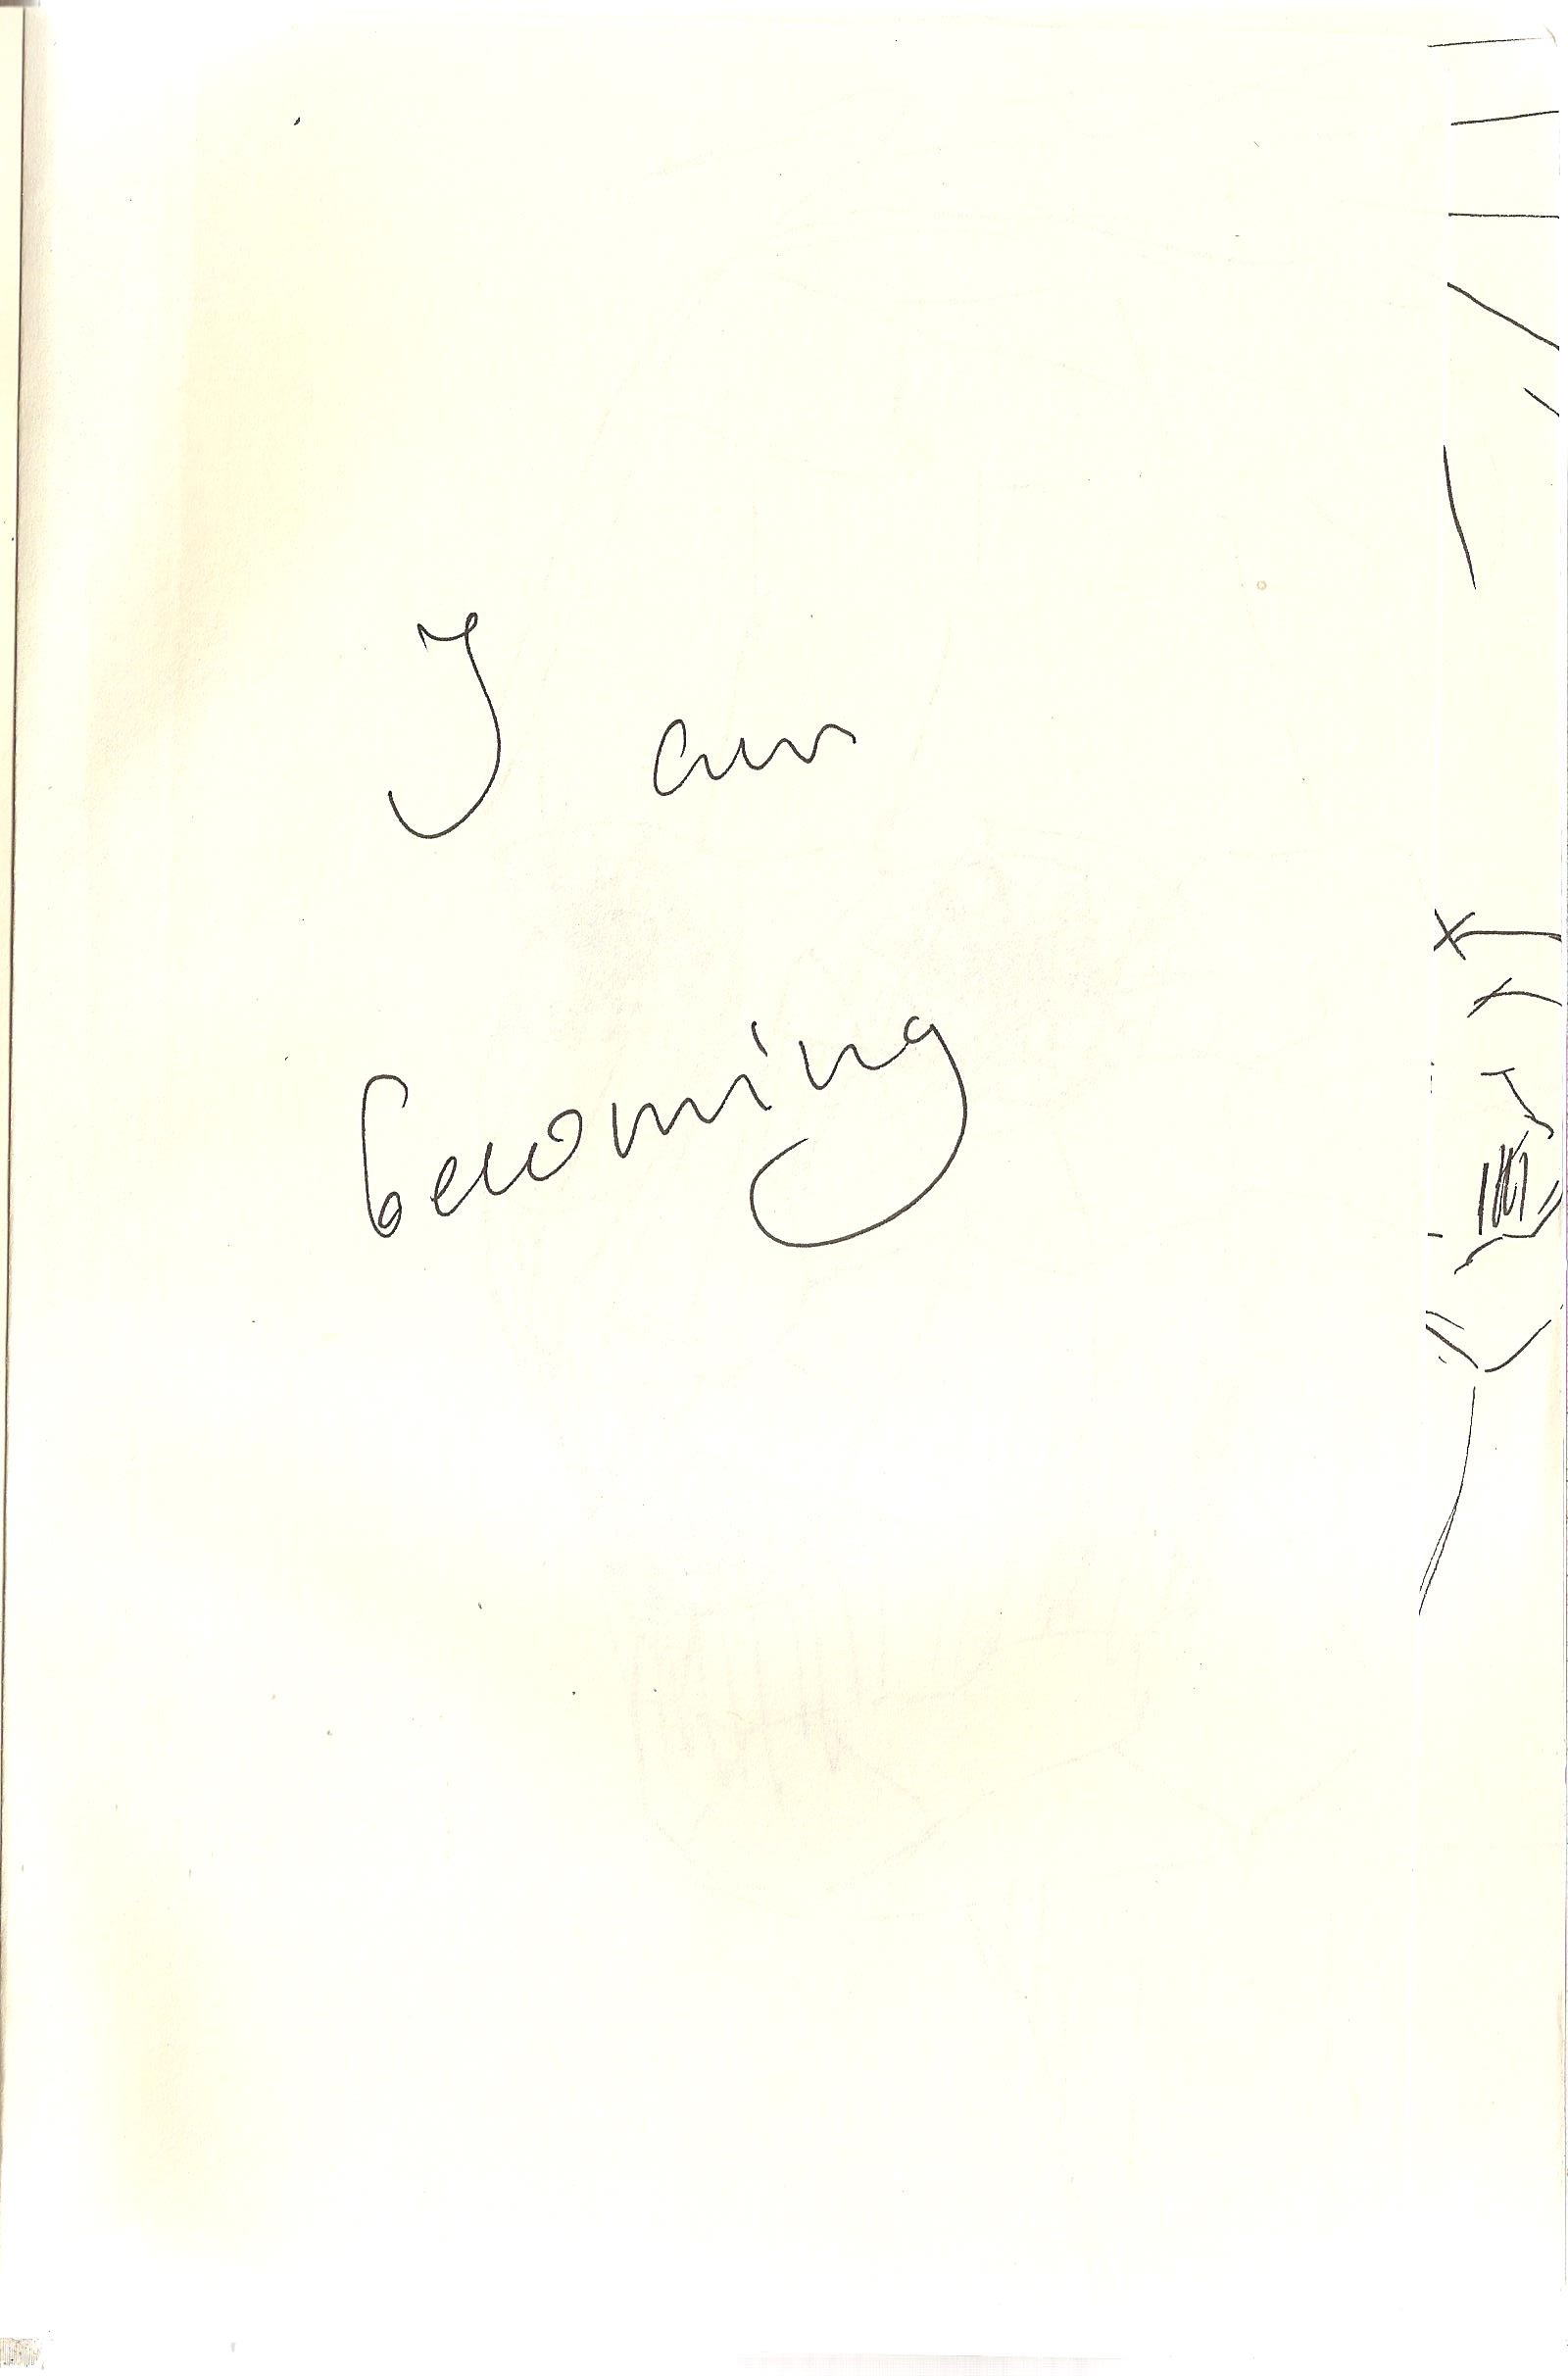 I am
becoming